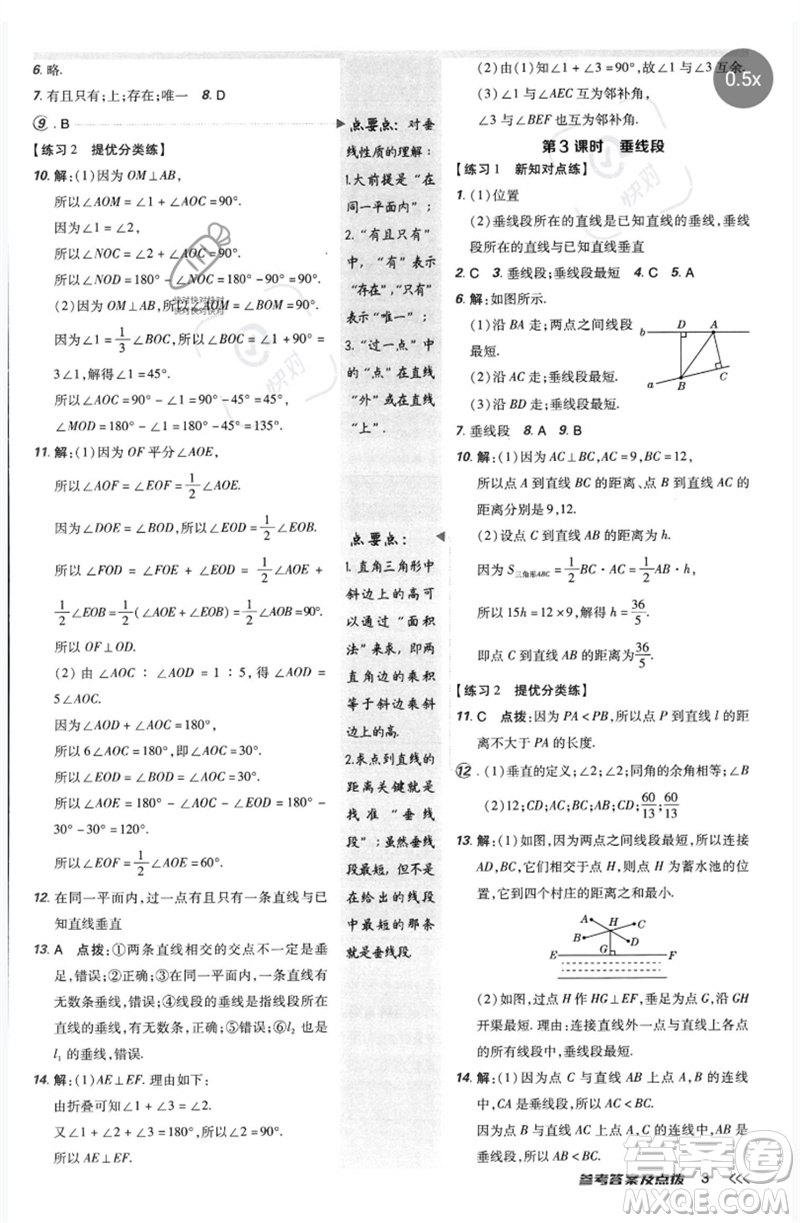 6. 略.
7. 有且只有；上；存在；唯一 8. D
9. B
【练习2 提优分类练】
10. 解：(1)因为 OM⊥AB，
所以∠AOM=∠1+∠AOC=90°.
因为∠1=∠2，
所以∠NOC=∠2+∠AOC=90°，
所以∠NOD=180°-∠NOC=180°-90°=90°.
(2)因为 OM⊥AB，所以∠AOM=∠BOM=90°.
因为∠1=1/3∠BOC，所以∠BOC=∠1+90°=
3∠1，解得∠1=45°.
所以∠AOC=90°-∠1=90°-45°=45°，
∠MOD=180°-∠1=180°-45°=135°.
11. 解：(1)因为 OF 平分∠AOE，
所以∠AOF=∠EOF=1/2∠AOE.
因为∠DOE=∠BOD，所以∠EOD=1/2∠EOB，
所以∠FOD=∠EOF+∠EOD=1/2∠AOE+
1/2∠EOB=1/2(∠AOE+∠EOB)=1/2∠AOB=90°.
所以 OF⊥OD.
(2)由∠AOC：∠AOD=1：5，得∠AOD=
5∠AOC.
因为∠AOD+∠AOC=180°，
所以6∠AOC=180°，即∠AOC=30°.
所以∠EOD=∠BOD=∠AOC=30°.
所以∠AOE=180°-∠BOD-∠EOD=180°-
30°-30°=120°.
所以∠EOF=1/2∠AOE=60°.
12. 在同一平面内，过一点有且只有一条直线与已
知直线垂直
13. A 点拨：①两条直线相交的交点不一定是垂
足，错误；②正确；③一条直线的垂线有
无数条，错误；④线段的垂线是指线段所在
直线的垂线，正确，有无数条；⑤正确；⑥l₂也是
l₁的垂线，错误.
14. 解：(1)AE⊥EF. 理由如下：
由折叠可知∠1=∠2.
又∠1+∠2=90°，所以∠2+∠2=90°.
所以 AE⊥EF.
点要点：对垂
线性质的理解：
1.大前提是“在
同一平面内”；
2.“有且只有”
中，“有”表示
“存在”，“只有”
表示“唯一”；
3.“过一点”中
的“点”在直线
“外”或在直线
“上”.
点要点：
1.直角三角形中
斜边上的高可
以通过“面积
法”来求，即两
直角边的乘积
等于斜边乘斜
边上的高.
2.求点到直线的
距离关键就是
找准“垂线
段”；虽然垂线
段最短，但不是
在给出的线段
中最短的那条
就是垂线段.
(2)由(1)知∠1+∠3=90°，故∠1与∠3互余.
∠1与∠AEC互为邻补角，
∠3与∠BEF也互为邻补角.
0.5x
第3课时 垂线段
【练习1 新知对点练】
1. (1)位置
(2)垂线段所在的直线是已知直线的垂线，垂线
段所在的直线与已知直线垂直
2. C 3. 垂线段；垂线段最短 4. C 5. A
6. 解：如图所示.
(1)沿 BA 走；两点之间线段
最短.
(2)沿 AC 走；垂线段最短.
(3)沿 BD 走；垂线段最短.
b D A
a B C
7. 垂线段 8. A 9. B
10. 解：(1)因为 AC⊥BC，AC=9，BC=12，
所以点 A 到直线 BC 的距离、点 B 到直线 AC 的
距离分别是9，12.
(2)设点 C 到直线 AB 的距离为 h.
因为 S三角形ABC=1/2BC·AC=1/2AB·h，
所以15h=12×9，解得h=36/5.
即点 C 到直线 AB 的距离为36/5.
【练习2 提优分类练】
11. C 点拨：因为 PA<PB，所以点 P 到直线 l 的距
离不大于 PA 的长度.
12. (1)垂直的定义；∠2；∠2；同角的余角相等；∠B
(2)12；CD；AC；AB；CD；60/13；60/13
13. 解：(1)如图，因为两点之间线段最短，所以连接
AD，BC，它们的交点为 H，点 H 为蓄水池的位
置，它到四个村庄的距离之和最小.
A H C
B G D
E F
(2)如图，过点 H 作 HG⊥EF，垂足为 G，沿 GH
开渠最短. 理由：连接直线外一点与直线上各点
的所有线段中，垂线段最短.
14. 解：(1)因为点 A 与点 B 的连线中，线段最短，
所以从火车站到码头沿线段 AB 走路线最短.
因为点 B 与直线 AC 上各点的连线中，垂线段
最短，
参考答案及点拨 3
快对
快对
快对
快对快对快对
快对快对快对
答案圈
MXQE.COM